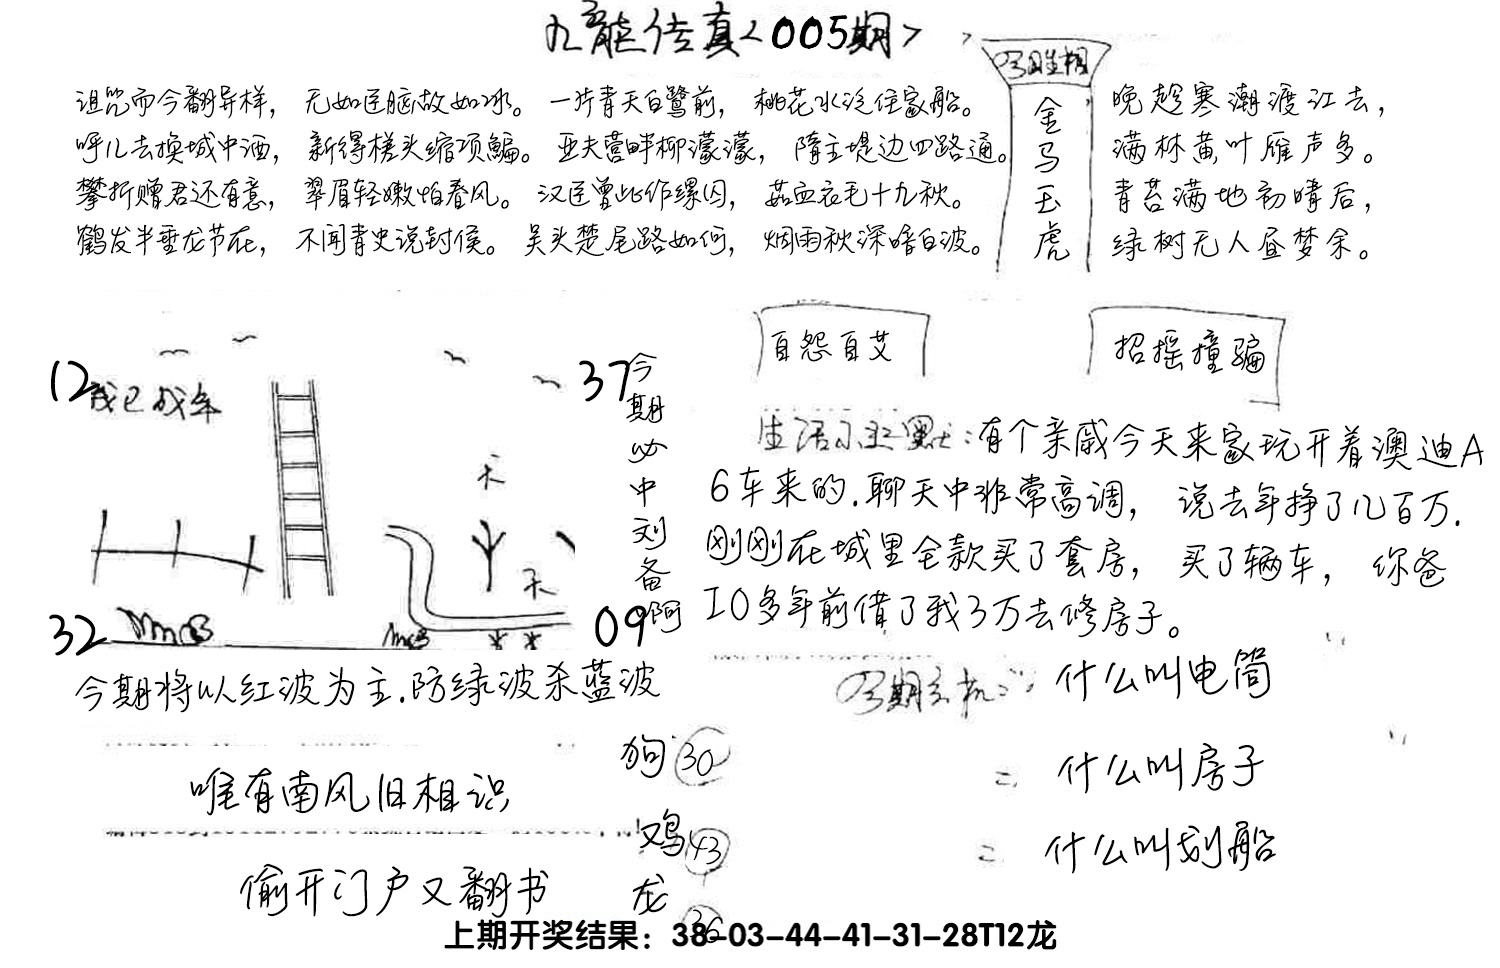 九龙传真<005期>
今期生相
金马玉虎
诅咒而今翻异样，无如医脑故如冰。一片青天白鹭前，桃花水泛住家船。
呼儿去换城中酒，新得槎头缩项鳊。亚夫营畔柳濛濛，隋主堤边四路通。
攀折赠君还有意，翠眉轻嫩怕春风。汉臣曾此作缧囚，茹血衣毛十九秋。
鹤发半垂龙节在，不闻青史说封侯。吴头楚尾路如何，烟雨秋深暗白波。
晚趁寒潮渡江去，
满林黄叶雁声多。
青苔满地初晴后，
绿树无人昼梦余。
自怨自艾
招摇撞骗
12
我已成年
37
今期必中刘备啊
32
09
今期将以红波为主.防绿波杀蓝波
生活小幽默:有个亲戚今天来家玩开着澳迪A
6车来的.聊天中非常高调，说去年挣了几百万.
刚刚在城里全款买了套房，买了辆车，你爸
10多年前借了我3万去修房子。
今期玄机
什么叫电筒
什么叫房子
什么叫划船
唯有南风旧相识
偷开门户又翻书
狗 30
鸡 43
龙 36
上期开奖结果：38-03-44-41-31-28T12龙